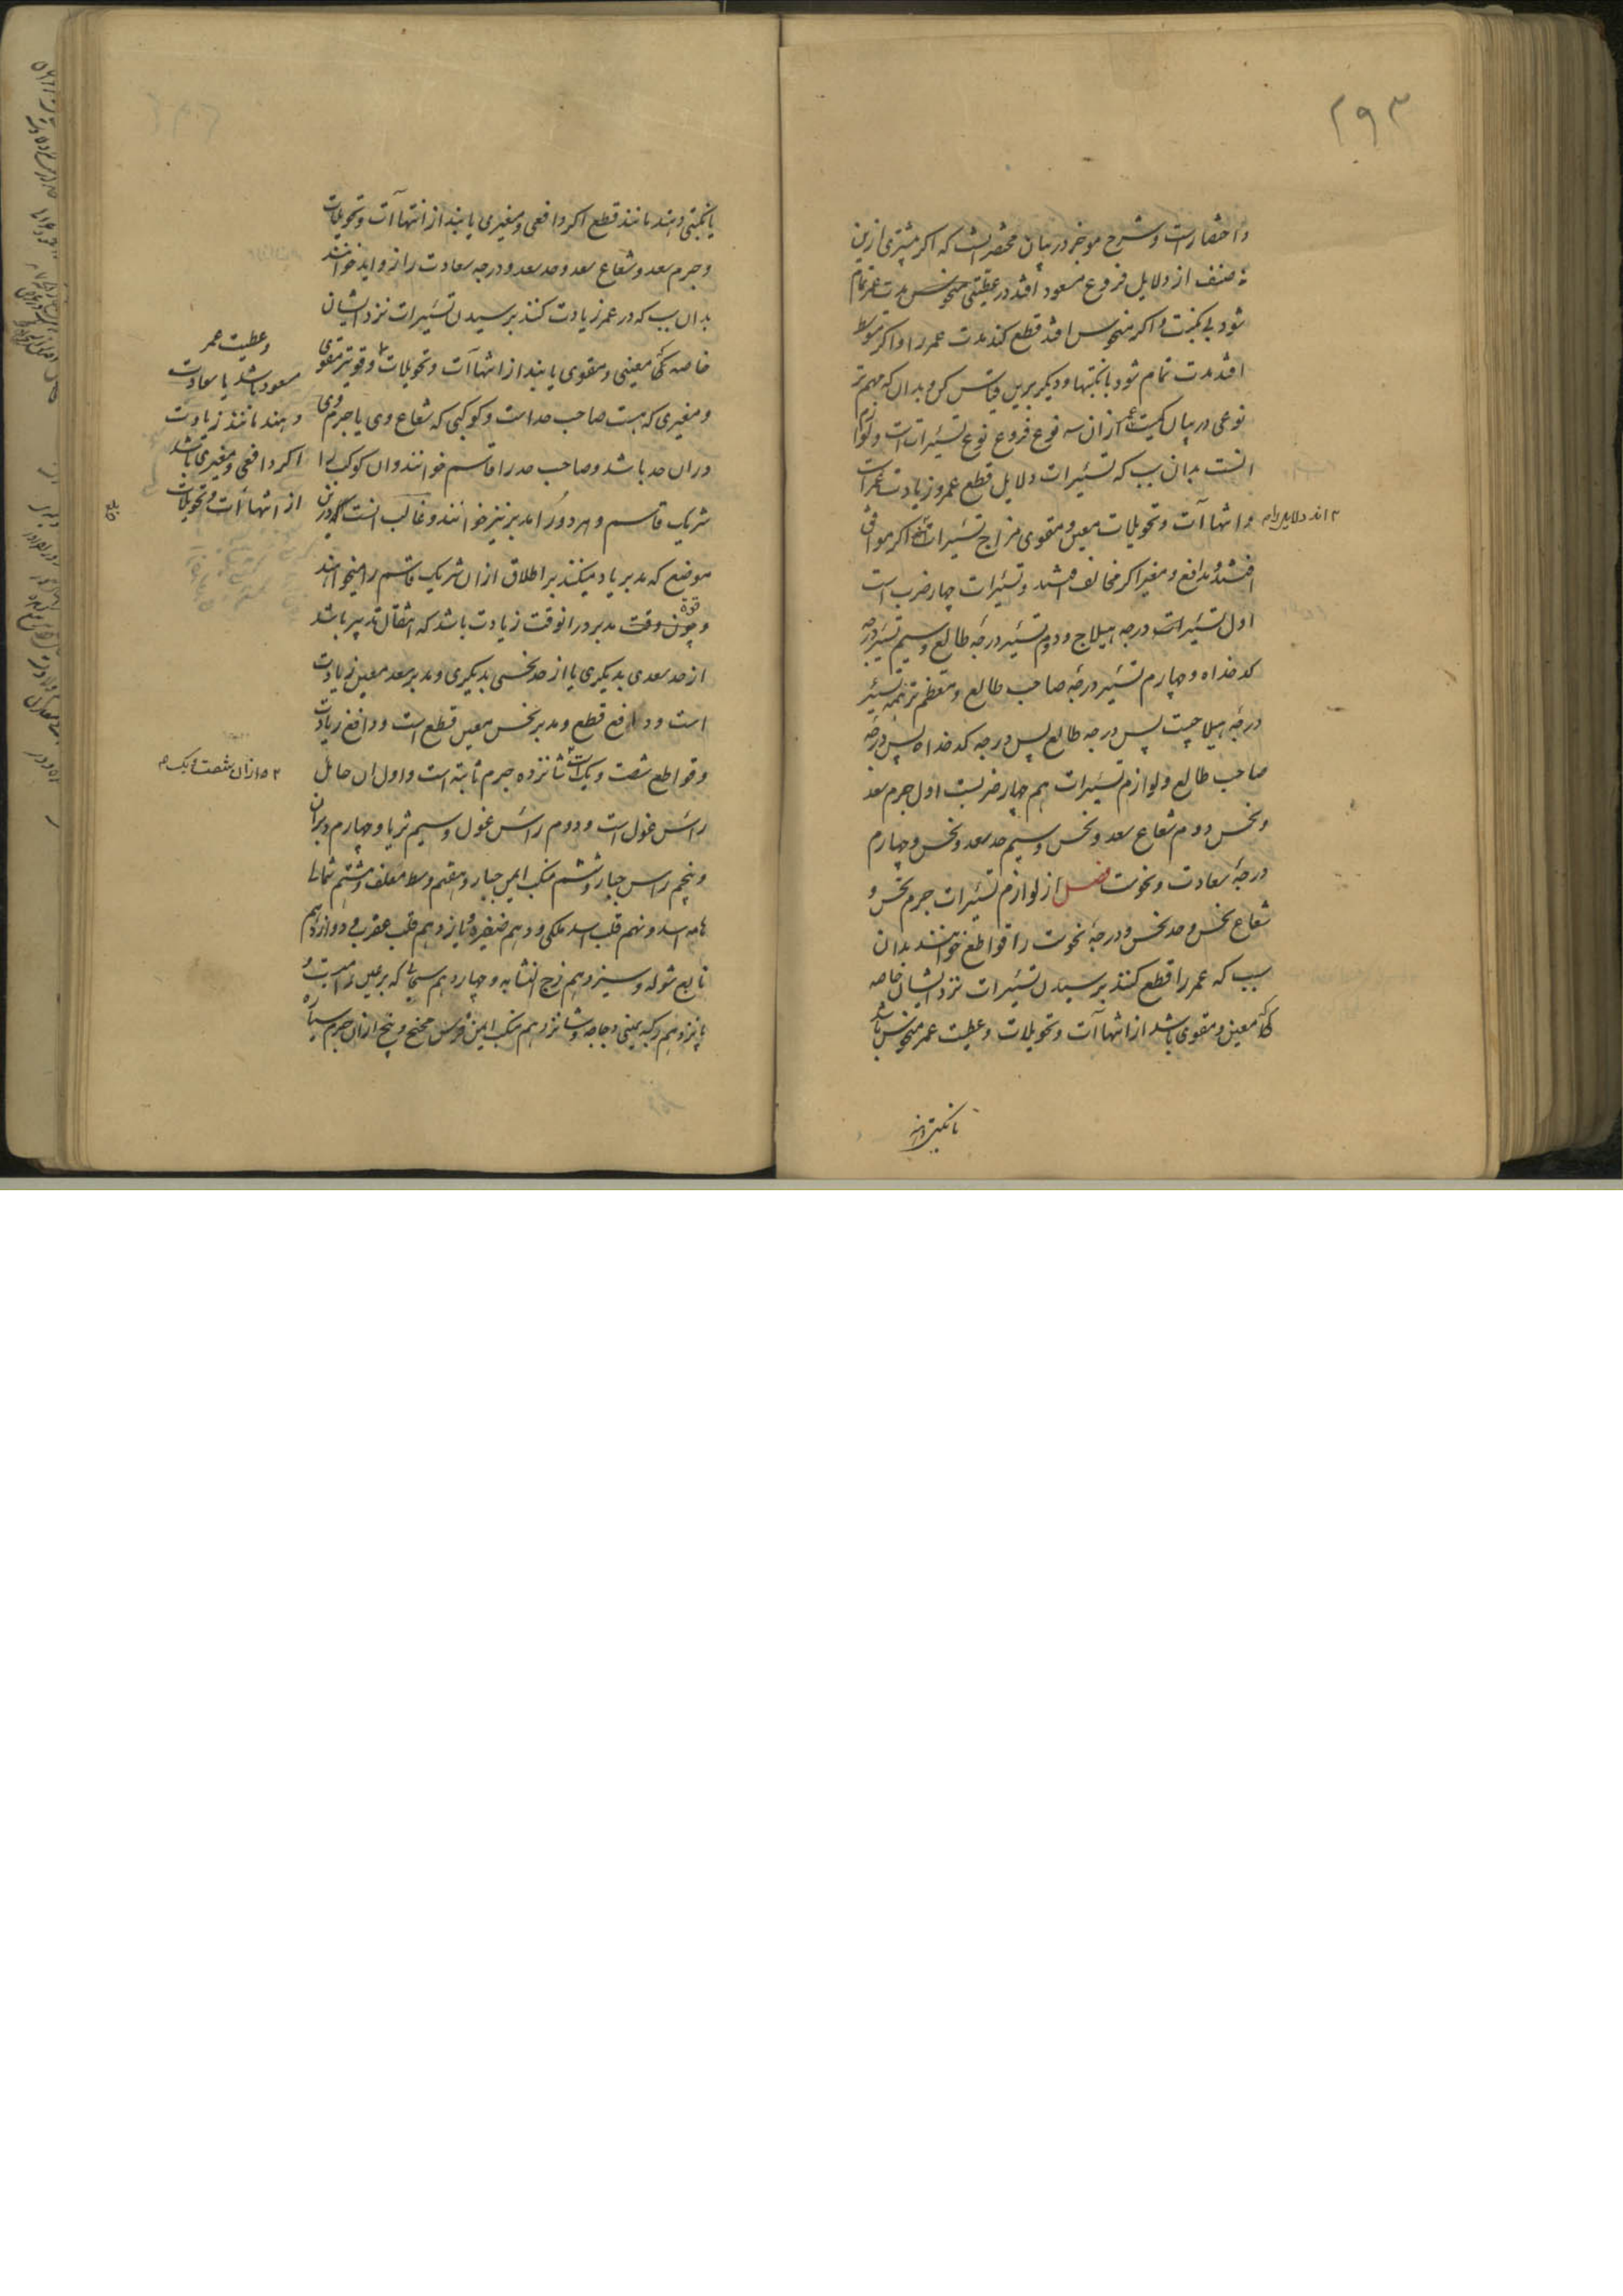 ۲۹۳
و اختصارست و شرح موجز در بیان مختصر انست که اکر مشتری ازین
صنف از دلایل فروع مسعود افتد در عطیتی منحوس مدت عمر تمام
شود بی نکبت و اکر منحوس افتد قطع کند مدت عمر را و اکر متوسط
افتد مدت تمام شود با نکبتها و دیکر برین قیاس کن و بدان که مهم تر
نوعی در بیان کمیت عمر ازان سه نوع فروع نوع تسییرات است و لوازم
انست بدان سبب که تسییرات دلایل قطع عمر و زیادت عمر است
و انتهاآت و تحویلات معین و مقوی مزاج تسییرات اکر موافق
افتند و دافع و مغیر اکر مخالف افتند و تسییرات چهار ضرب است
اول تسییرات درجه هیلاج و دوم تسییر درجهٔ طالع و سیم تسییر درجه
کدخداه و چهارم تسییر درجهٔ صاحب طالع و معظم ترین همه تسییر
درجهٔ هیلاجست پس درجه طالع پس درجه کدخداه پس درجه
صاحب طالع و لوازم تسییرات هم چهار ضربست اول جرم سعد
و نحس دوم شعاع سعد و نحس و سیم حد سعد و نحس و چهارم
درجهٔ سعادت و نحوست فصل از لوازم تسییرات جرم نحس و
شعاع نحس و حد نحس و درجهٔ نحوست را قواطع خوانند بدان
سبب که عمر را قطع کنند برسیدن تسییرات نزد ایشان خاصه
کاه معین و مقوی باشد از انتهاآت و تحویلات و عطیت عمر منحوس باشد
یا نکبتی دهند
یا نکبتی دهند مانند قطع اکر دافعی و مغیری یابند از انتهاآت و تحویلات
و جرم سعد و شعاع سعد و حد سعد و درجه سعادت را زواید خوانند
بدان سبب که در عمر زیادت کنند برسیدن تسییرات نزد ایشان
خاصه کی معینی و مقوی یابند از انتهاآت و تحویلات و قویتر مقوی
و مغیری که هست صاحب حد است و کوکبی که شعاع وی یا جرم وی
دران حد باشد و صاحب حد را قاسم خوانند و ان کوکب را
شریک قاسم و هر دو را مدبر نیز خوانند و غالب انست که درین
موضع که مدبر یاد میکنند بر اطلاق ازان شریک قاسم را میخواهند
و چون وقت مدبر درانوقت زیادت باشد که انتقال تدبیر باشد
از حد سعدی بدیکری یا از حد نحسی بدیکری و مدبر سعد معین زیادت
است و دافع قطع و مدبر نحس معین قطع است و دافع زیادت
و قواطع شصت و یک است شانزده جرم ثابته است و اول ان حامل
راس غول است و دوم راس غول و سیم ثریا و چهارم دبران
و پنجم راس جبار و ششم منکب ایمن جبار و هفتم وسط معلف و هشتم شمالی
هامه اسد و نهم قلب اسد ملکی و دهم ضفیره و یازدهم قلب عقرب و دوازدهم
تابع شوله و سیزدهم زج النشابه و چهاردهم سحابی که بر عین رامیست و
پانزدهم رکبه یمنی دجاجه و شانزدهم منکب ایمن فرس مجنح و پنج ازان جرم سیاره
و عطیت عمر
مسعود باشد یا سعادت
دهند مانند زیادت
اکر دافعی و مغیری باشد
از انتهاآت و تحویلات
ازان شصت و یک